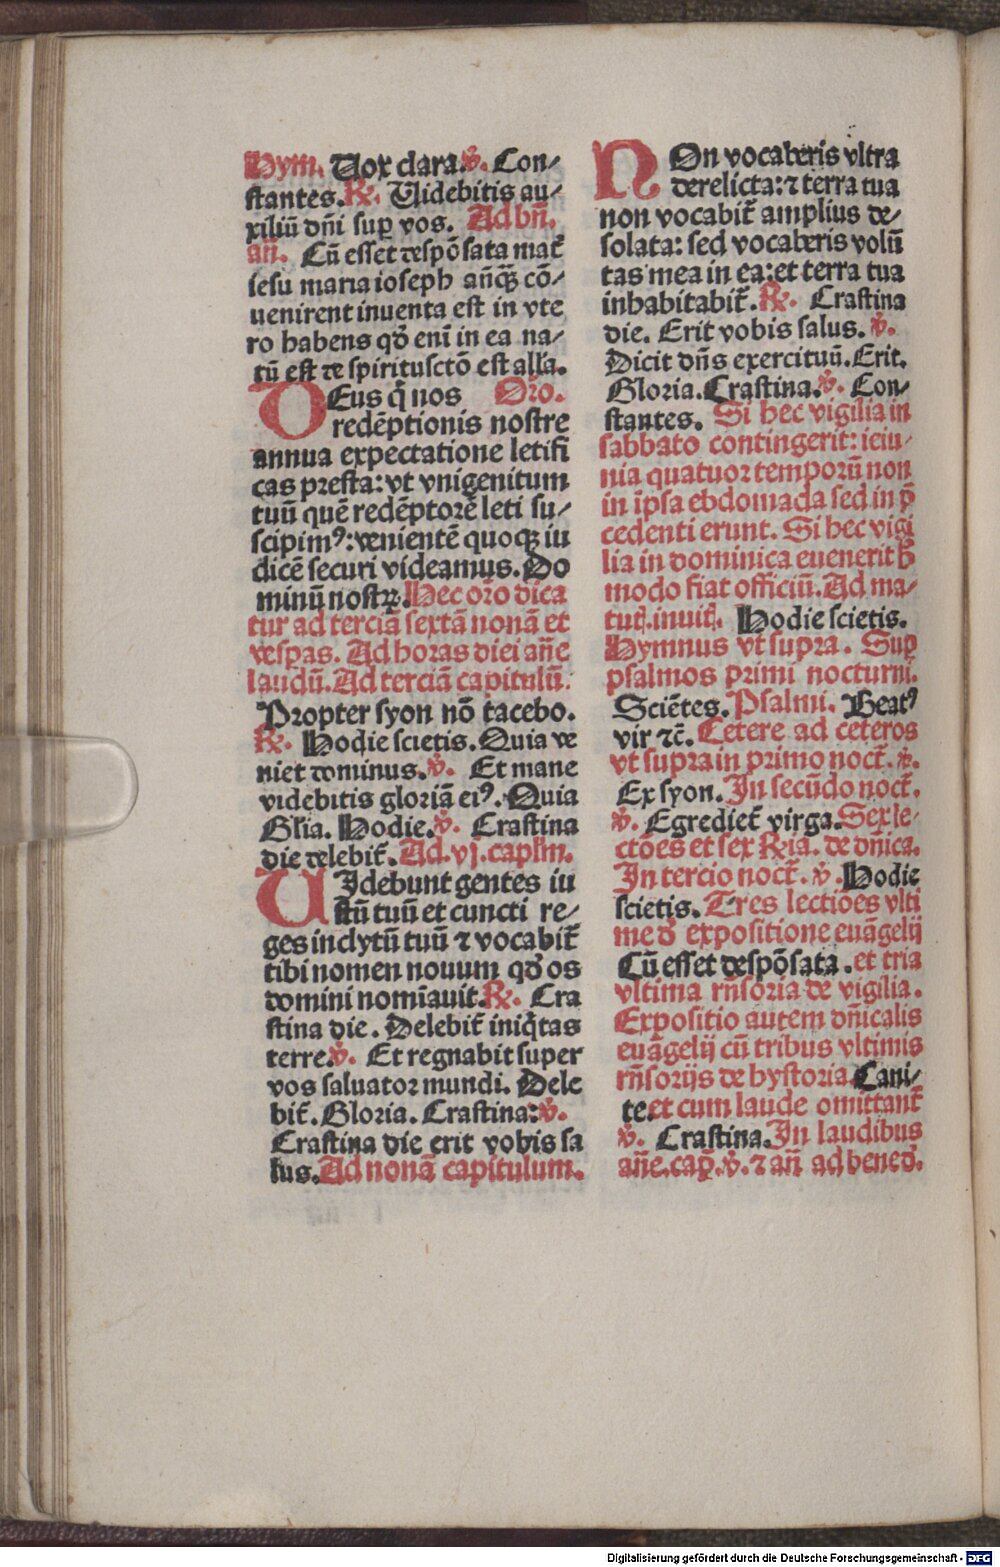 Hym. Uox clara. ℣. Con⸗
stantes. ℟. Uidebitis au⸗
xiliū dn̄i suꝑ vos. Ad bn̄.
an̄. Cū esset despōsata mat̄
iesu maria ioseph an̄qꝫ cō⸗
uenirent inuenta est in vte
ro habens qđ enī in ea na⸗
tū est de spiritusctō est all'a.
DEus q̄ nos Oro.
redēptionis nostre
annua expectatione letifi
cas presta: vt vnigenitum
tuū quē redēptorē leti su⸗
scipimꝰ: venientē quoqꝫ iu
dicē securi videamus. Do
minū nostꝝ. Hec oro dica
tur ad terciā sextā nonā et
vespas. Ad horas diei an̄e
laudū. Ad terciā capitulū.
Propter syon nō tacebo.
℟. Hodie scietis. Quia ve
niet dominus. ℣. Et mane
videbitis gloriā eiꝰ. Quia
Gl'ia. Hodie. ℣. Crastina
die delebit̄. Ad. vj. capl'm.
UIdebunt gentes iu
stū tuū et cuncti re⸗
ges inclytū tuū ⁊ vocabit̄
tibi nomen nouum qđ os
domini nomīauit. ℟. Cra
stina die. Delebit̄ iniq̄tas
terre. ℣. Et regnabit super
vos saluator mundi. Dele
bit̄. Gloria. Crastina: ℣.
Crastina die erit vobis sa
lus. Ad nonā capitulum.
NOn vocaberis vltra
derelicta: ⁊ terra tua
non vocabit̄ amplius de⸗
solata: sed vocaberis volū
tas mea in ea: et terra tua
inhabitabit̄. ℟. Crastina
die. Erit vobis salus. ℣.
Dicit dn̄s exercituū. Erit.
Gloria. Crastina. ℣. Con⸗
stantes. Si hec vigilia in
sabbato contingerit: ieiu⸗
nia quatuor temporū non
in ip̄sa ebdomada sed in p̄
cedenti erunt. Si hec vigi
lia in dominica euenerit h̄
modo fiat officiū. Ad ma⸗
tut̄. inuit̄. Hodie scietis.
Hymnus vt supra. Suꝑ
psalmos primi nocturni.
Sciētes. Psalmi. Beatꝰ
vir ⁊c̄. Cetere ad ceteros
vt supra in primo noct̄. ℣.
Ex syon. In secūdo noct̄.
℣. Egrediet̄ virga. Sex le⸗
ctōes et sex ℟ia. de dn̄ica.
In tercio noct̄. ℣. Hodie
scietis. Tres lectiōes vlti
me đ expositione euāgelij
Cū esset despōsata. et tria
vltima rn̄soria de vigilia.
Expositio autem dn̄icalis
euāgelij cū tribus vltimis
rn̄sorijs de hystoria Cani⸗
te. et cum laude omittant̄
℣. Crastina. In laudibus
an̄e. cap̄. ℣. ⁊ an̄ ad bened̄.
Digitalisierung gefördert durch die Deutsche Forschungsgemeinschaft - DFG